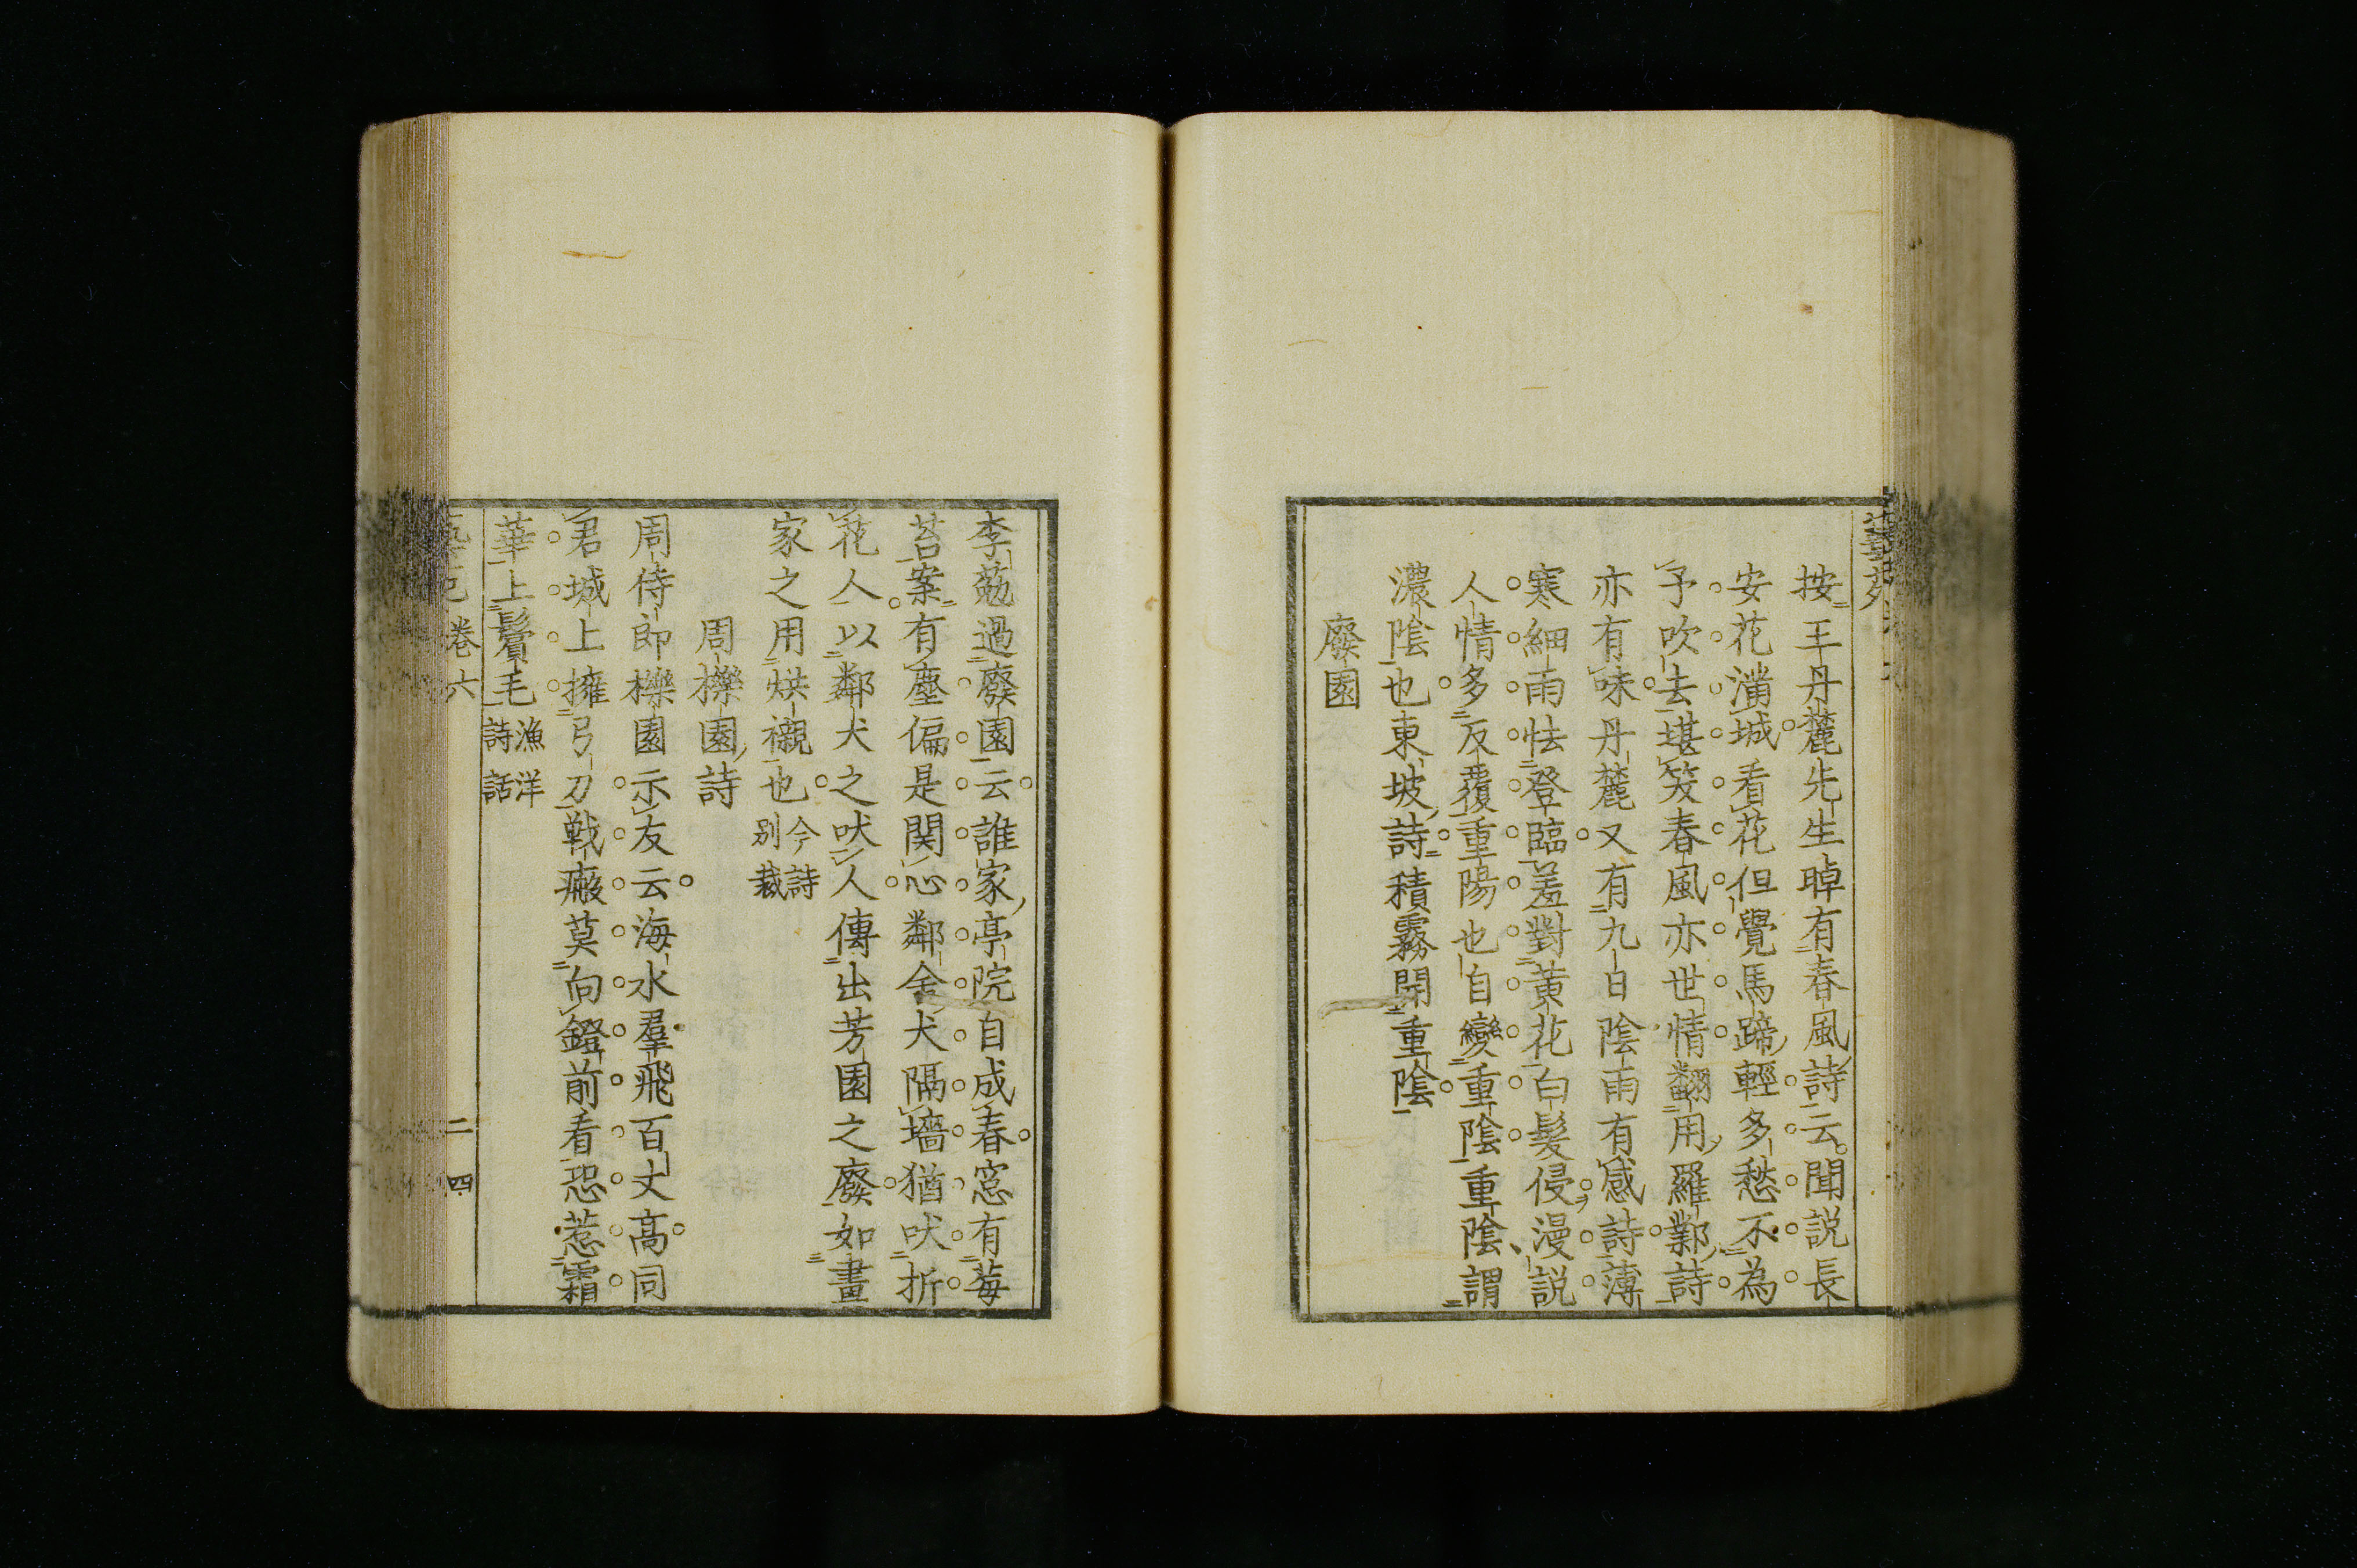 按王丹麓先生晫有春風詩云聞説長
安花滿城看花但覺馬蹄輕多愁不為
予吹去堪笑春風亦世情翻用羅鄴詩
亦有味丹麓又有九日陰雨有感詩薄
寒細雨怯登臨羞對黃花白髮侵漫説
人情多反覆重陽也自變重陰重陰謂
濃陰也東坡詩積霧開重陰
廢園
李葂過廢園云誰家亭院自成春窓有莓
苔案有塵偏是関心鄰舍犬隔墻猶吠折
花人以鄰犬之吠人傳出芳園之廢如畫
家之用烘襯也今詩
別裁
周櫟園詩
周侍郎櫟園示友云海水羣飛百丈高同
君城上擁弓刀戦瘢莫向鐙前看恐惹霜
華上鬢毛漁洋
詩話
卷六
二四